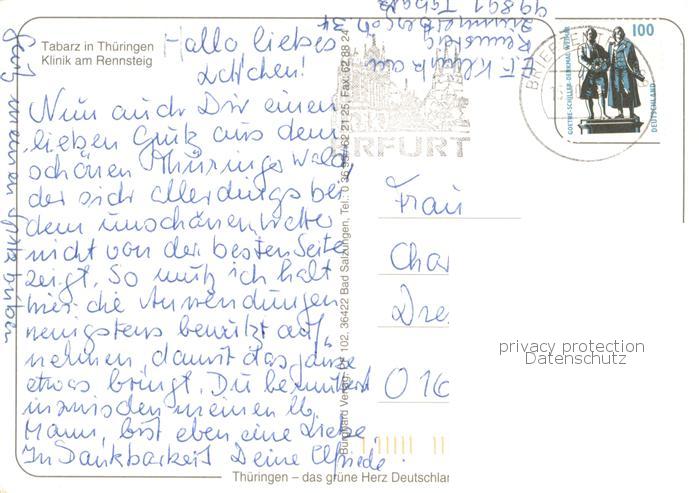 Tabarz in Thüringen
Klinik am Rennsteig
Hallo liebes
Lottchen!
Nun auch Dir einen
lieben Gruß aus dem
schönen Thüringer Wald
der sich allerdings bei
dem unschönen Wetter
nicht von der besten Seite
zeigt. So muß ich halt
hier die Anwendungen
wenigstens bewußt auf
nehmen, damit das ganze
etwas bringt. Du bemutterst
inzwischen meinen lb.
Mann, bist eben eine Liebe
In Dankbarkeit Deine Elfriede.
Grüß meinen Spitzbuben
99891 Tabarz
34
Burghard Verlag, PF 102, 36422 Bad Salzungen, Tel.: 0 36 95/62 21 25, Fax: 62 88 24
ERFURT
BRIEFZENTRUM
GOETHE-SCHILLER-DENKMAL WEIMAR
100
DEUTSCHLAND
Frau
Char
Dre
016
privacy protection
Datenschutz
Thüringen – das grüne Herz Deutschlan